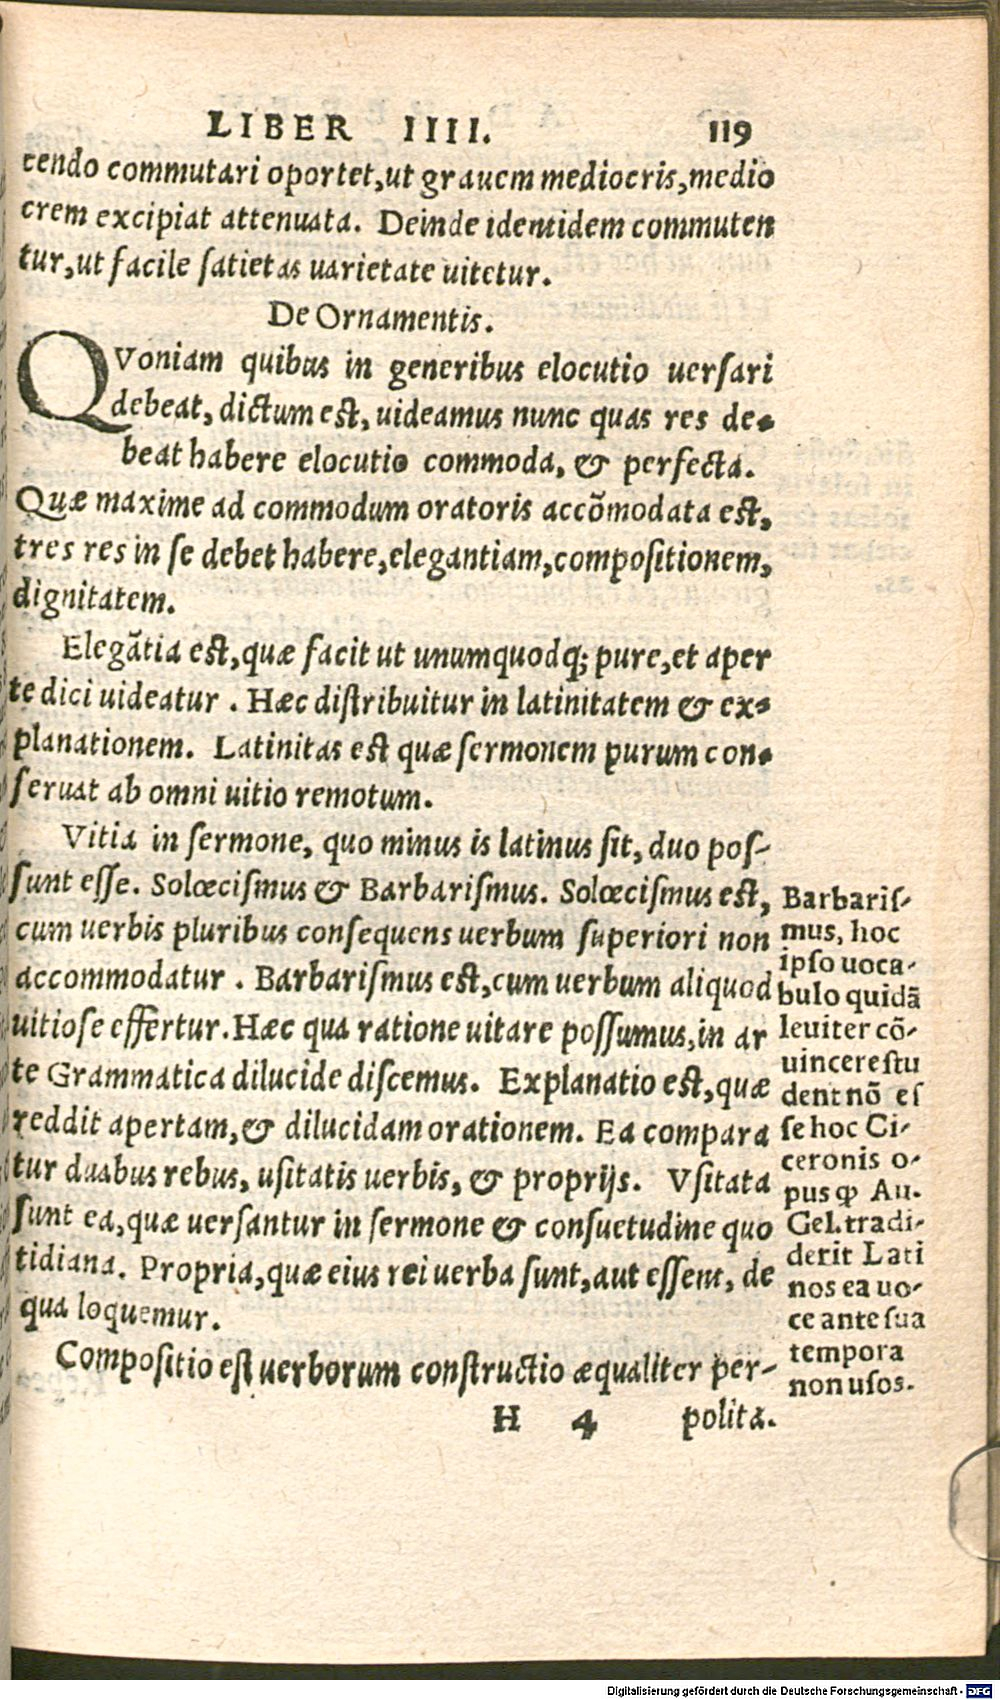 LIBER IIII. 119
cendo commutari oportet,ut grauem mediocris,medio
crem excipiat attenuata. Deinde identidem commuten
tur,ut facile satietas uarietate uitetur.
De Ornamentis.
QVoniam quibus in generibus elocutio uersari
debeat, dictum est, uideamus nunc quas res de-
beat habere elocutio commoda, & perfecta.
Quæ maxime ad commodum oratoris accõmodata est,
tres res in se debet habere,elegantiam,compositionem,
dignitatem.
Elegãtia est,quæ facit ut unumquodq; pure,et aper
te dici uideatur . Hæc distribuitur in latinitatem & ex-
planationem. Latinitas est quæ sermonem purum con-
seruat ab omni uitio remotum.
Vitia in sermone, quo minus is latinus sit, duo pos-
sunt esse. Solœcismus & Barbarismus. Solœcismus est,
cum uerbis pluribus consequens uerbum superiori non
accommodatur . Barbarismus est,cum uerbum aliquod
uitiose effertur.Hæc qua ratione uitare possumus,in ar
te Grammatica dilucide discemus. Explanatio est,quæ
reddit apertam,& dilucidam orationem. Ea compara
tur duabus rebus, usitatis uerbis, & proprijs. Vsitata
sunt ea,quæ uersantur in sermone & consuetudine quo
tidiana. Propria,quæ eius rei uerba sunt,aut essent, de
qua loquemur.
Compositio est uerborum constructio æqualiter per-
H 4 polita.
Barbaris-
mus, hoc
ipso uoca-
bulo quidã
leuiter cõ-
uincere stu
dent nõ es
se hoc Ci-
ceronis o-
pus ꝙ Au.
Gel. tradi-
derit Lati
nos ea uo-
ce ante sua
tempora
non usos.
Digitalisierung gefördert durch die Deutsche Forschungsgemeinschaft - DFG